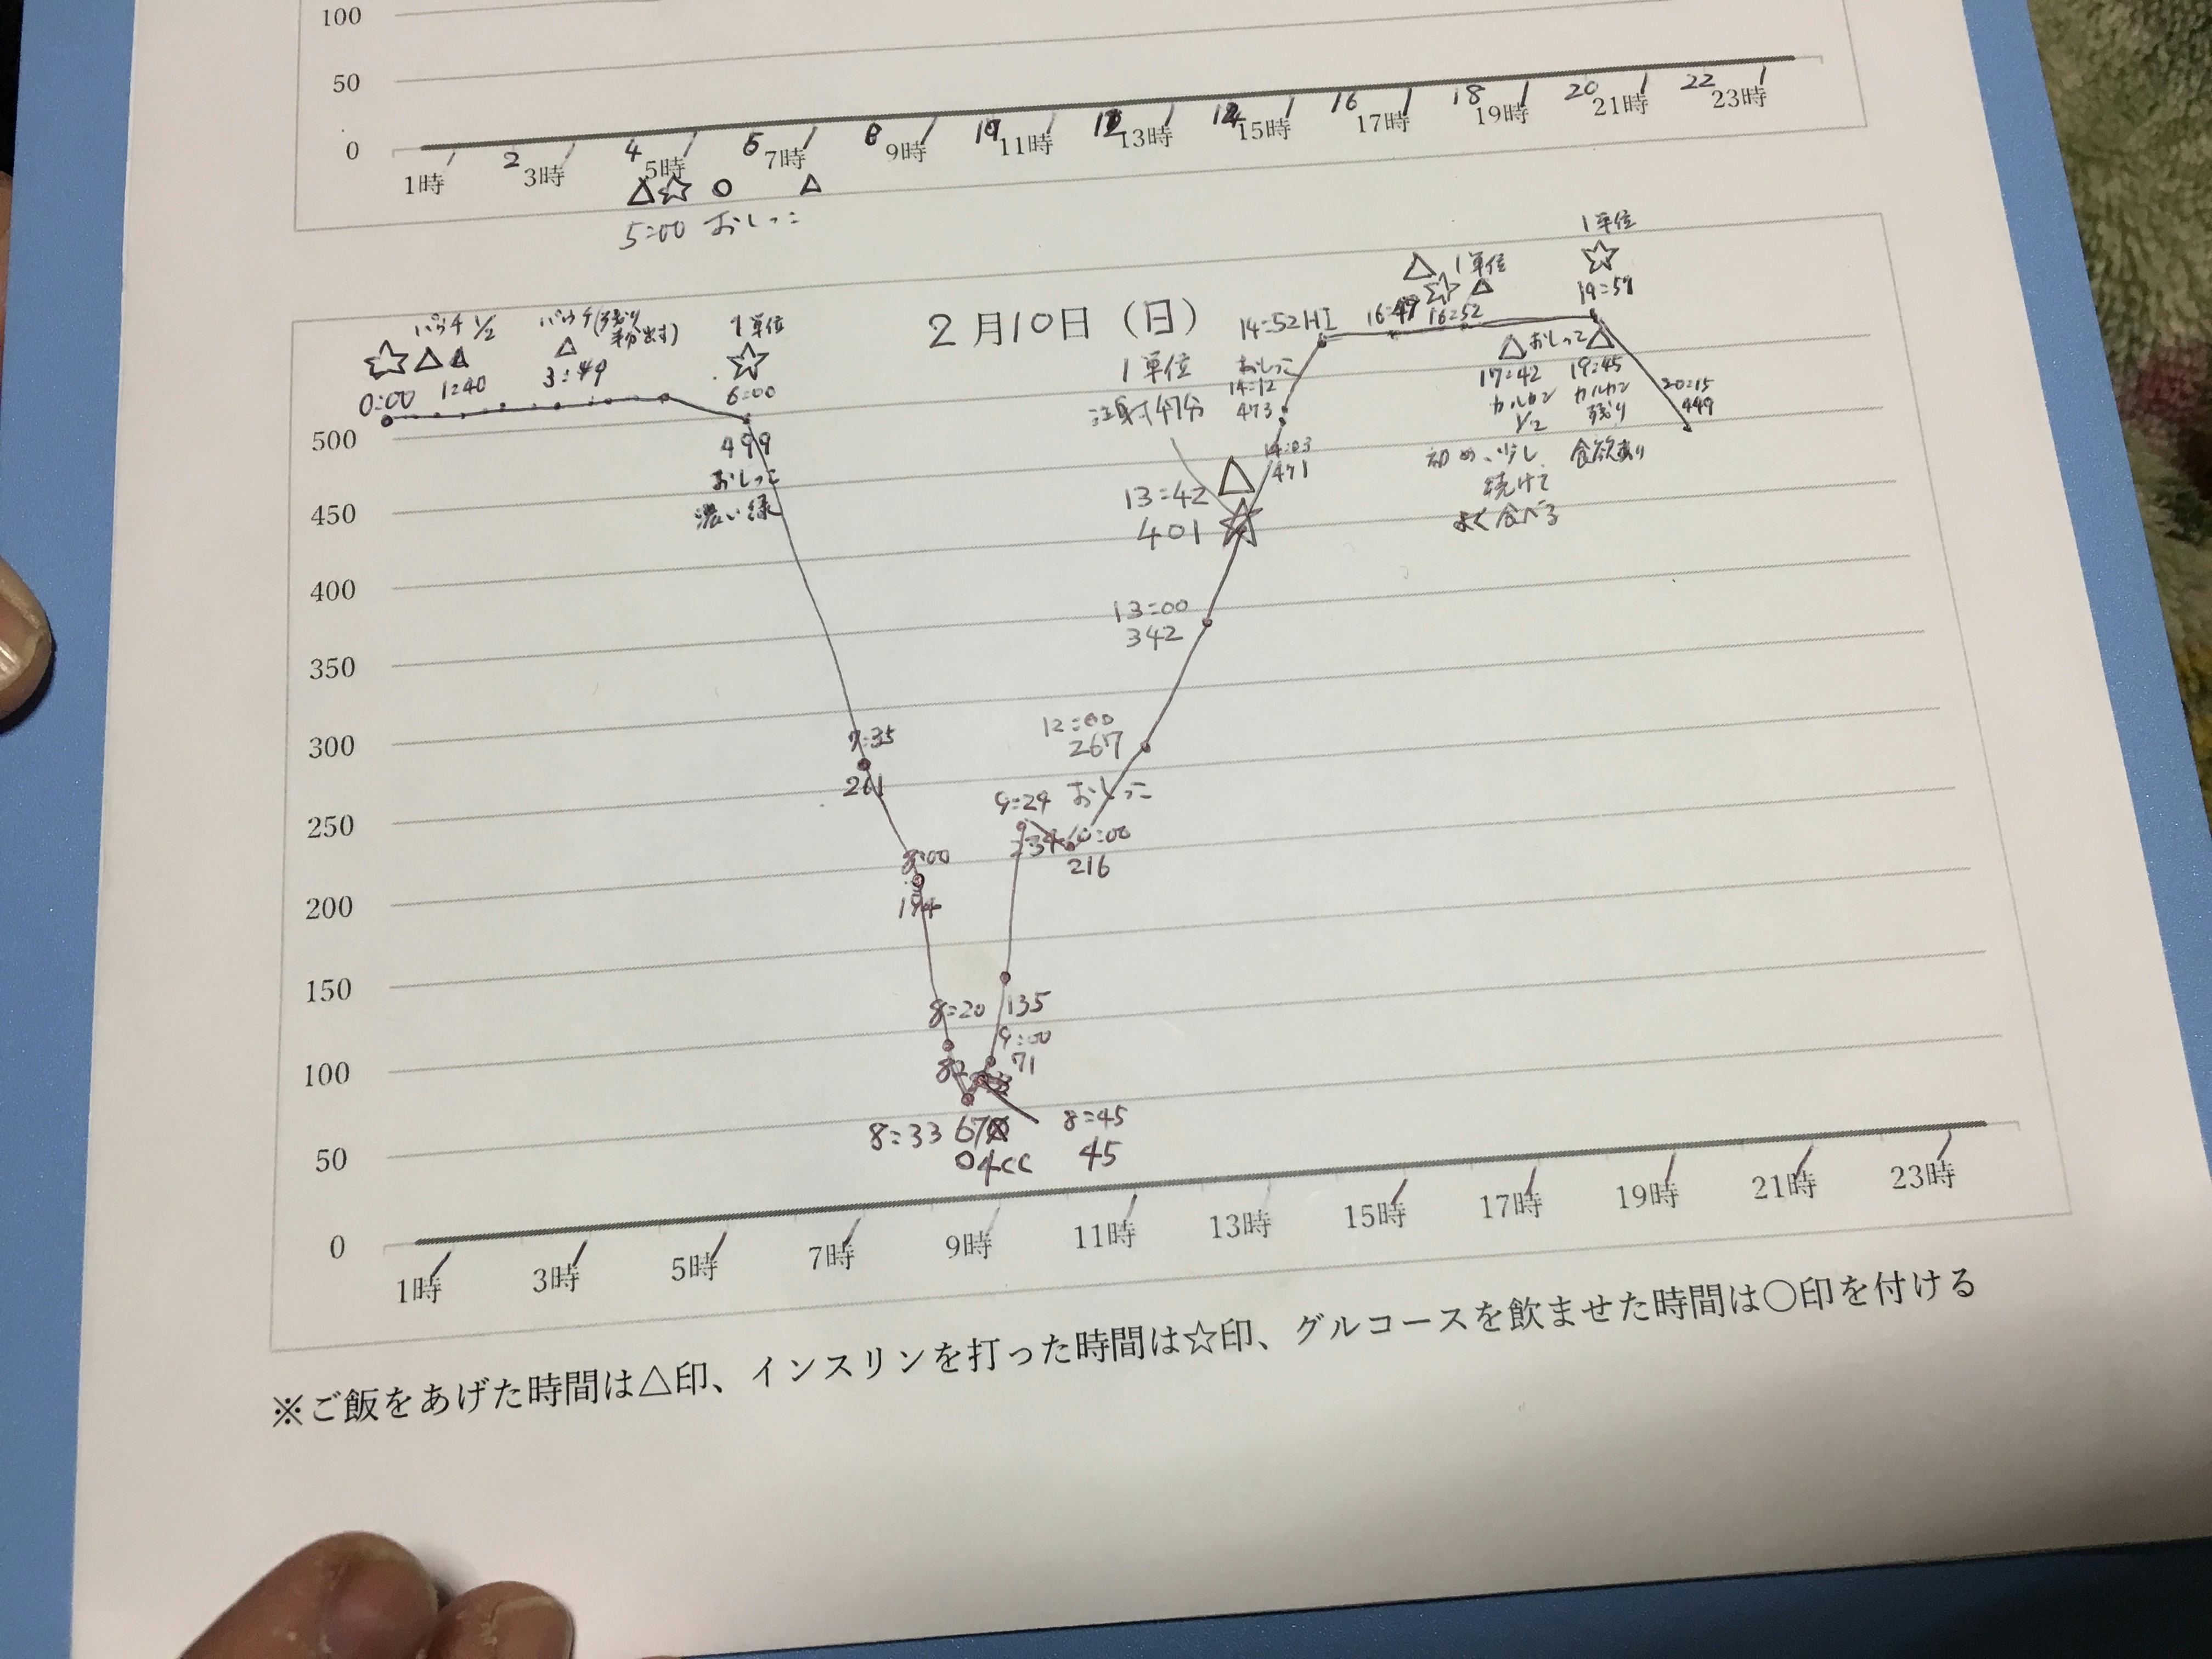 100
50
0
2 4 6 8 10 12 14 16 18 20 22
1時 3時 5時 7時 9時 11時 13時 15時 17時 19時 21時 23時
△☆ ○ △
5:00 おしっこ
2月10日（日）
☆△△
パウチ 1/2
0:00 1:40
パウチ(残り
△
3:49
1単位
☆
6:00
499
おしっこ
濃い緑
7:35
261
8:00
194
8:20
82
8:33 67
○4cc
8:45
45
9:00
71
135
9:24
234
おしっこ
10:00
216
12:00
267
13:00
342
1単位
注射 47分
△
13:42
401
☆
14:03
471
おしっこ
14:12
473
14:52HI
△ 1単位
☆△
16:49 16:52
1単位
☆
19:57
△おしっこ△
17:42
カルカン
1/2
初め、少し
続けて
よく食べる
19:45
カルカン
残り
食欲あり
20:15
449
500
450
400
350
300
250
200
150
100
50
0
1時 3時 5時 7時 9時 11時 13時 15時 17時 19時 21時 23時
※ご飯をあげた時間は△印、インスリンを打った時間は☆印、グルコースを飲ませた時間は〇印を付ける